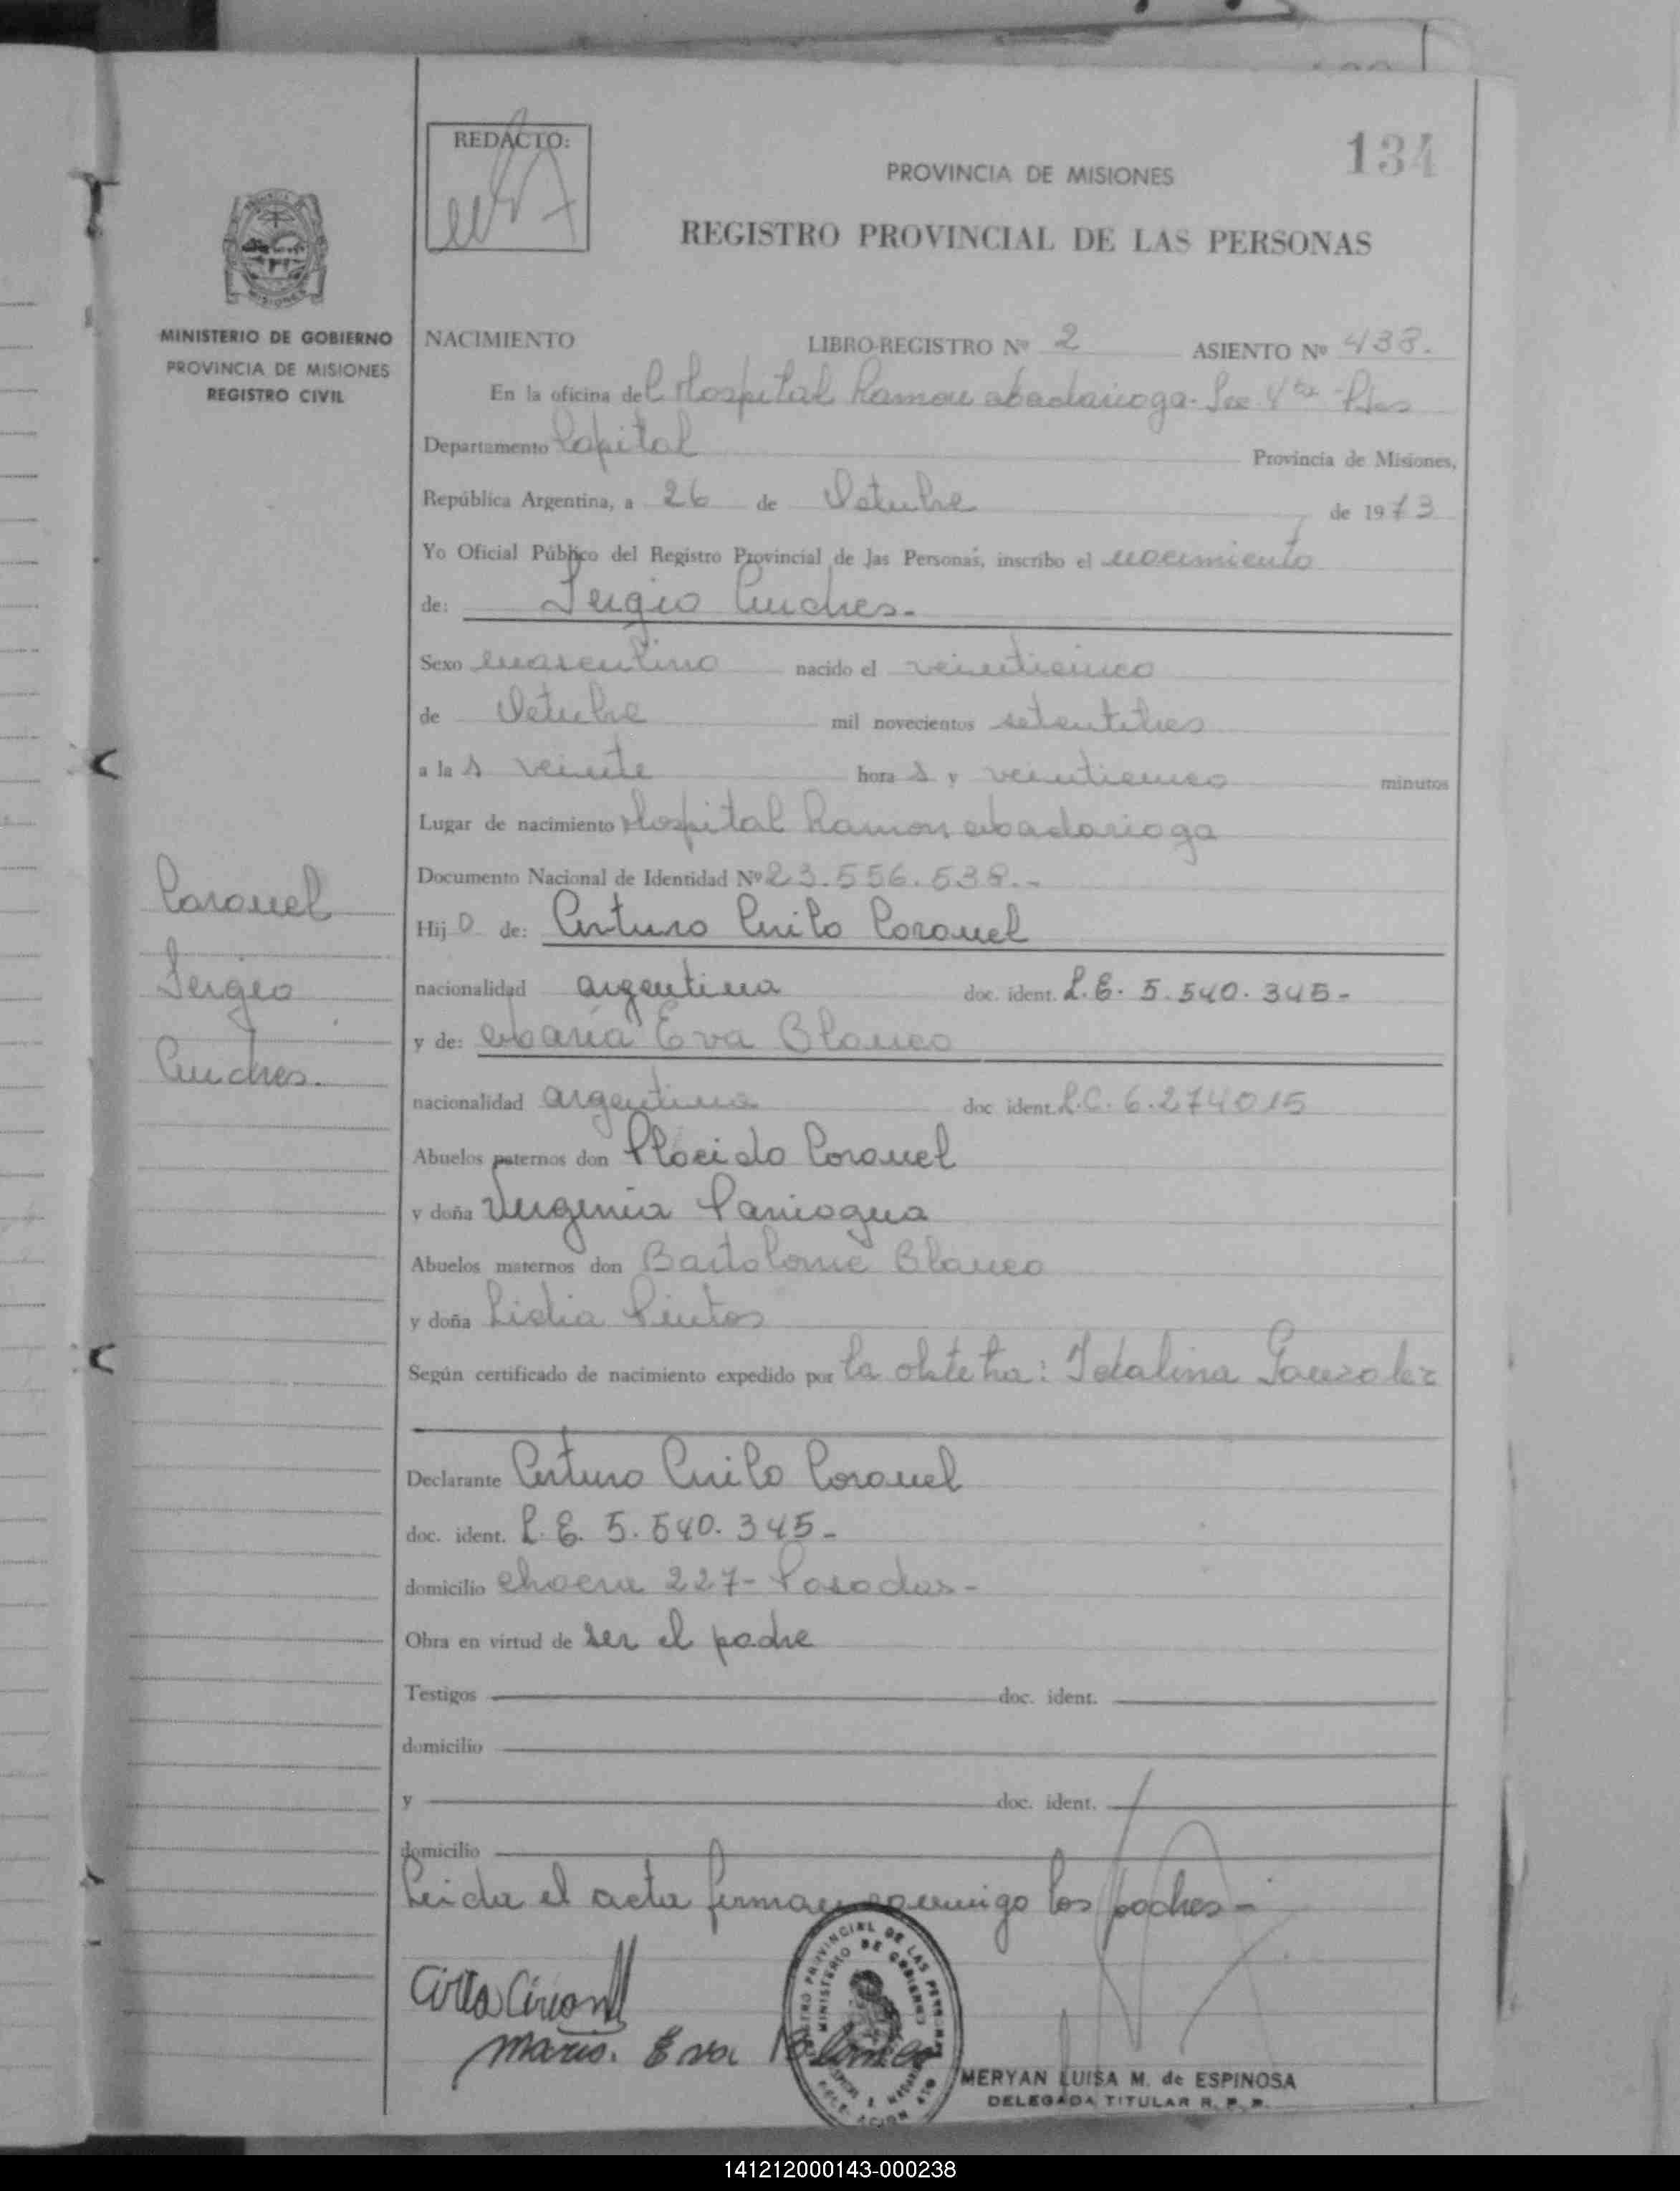 REDACTO:
134
PROVINCIA DE MISIONES
REGISTRO PROVINCIAL DE LAS PERSONAS
MINISTERIO DE GOBIERNO
PROVINCIA DE MISIONES
REGISTRO CIVIL
NACIMIENTO LIBRO-REGISTRO Nº 2 ASIENTO Nº 438.
En la oficina del Hospital Ramon Madariaga. Sec 4ta Pdas
Departamento Capital Provincia de Misiones,
República Argentina, a 26 de Octubre de 1973
Yo Oficial Público del Registro Provincial de las Personas, inscribo el nacimiento
de: Sergio Andres.-
Sexo masculino nacido el veinticinco
de Octubre mil novecientos setentitres
a las veinte horas y veinticinco minutos
Lugar de nacimiento Hospital Ramon Madariaga
Documento Nacional de Identidad Nº 23.556.538.-
Coronel
Sergio
Andres.
Hijo de: Arturo Cirilo Coronel
nacionalidad argentina doc. ident. L.E. 5.540.345-
y de: Maria Eva Blanco
nacionalidad argentina doc ident. L.C. 6.274015
Abuelos paternos don Placido Coronel
y doña Virginia Paniagua
Abuelos maternos don Bartolome Blanco
y doña Lidia Pintos
Según certificado de nacimiento expedido por la obstetra: Idalina Gonzalez
Declarante Arturo Cirilo Coronel
doc. ident. L.E. 5.540.345-
domicilio chacra 227- Posadas-
Obra en virtud de ser el padre
Testigos doc. ident.
domicilio
y doc. ident.
domicilio
Leida el acta firman conmigo los padres-
Maria. Eva Blanco
MERYAN LUISA M. de ESPINOSA
DELEGADA TITULAR R. P. P.
141212000143-000238